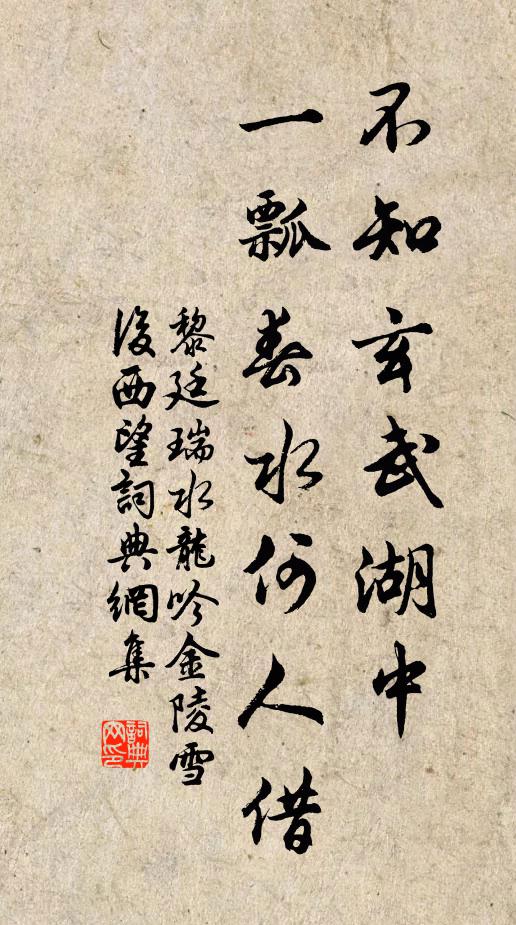 不知玄武湖中
一瓢春水何人借
黎廷瑞水龍吟金陵雪
後西望詞典網集
詞典
网印